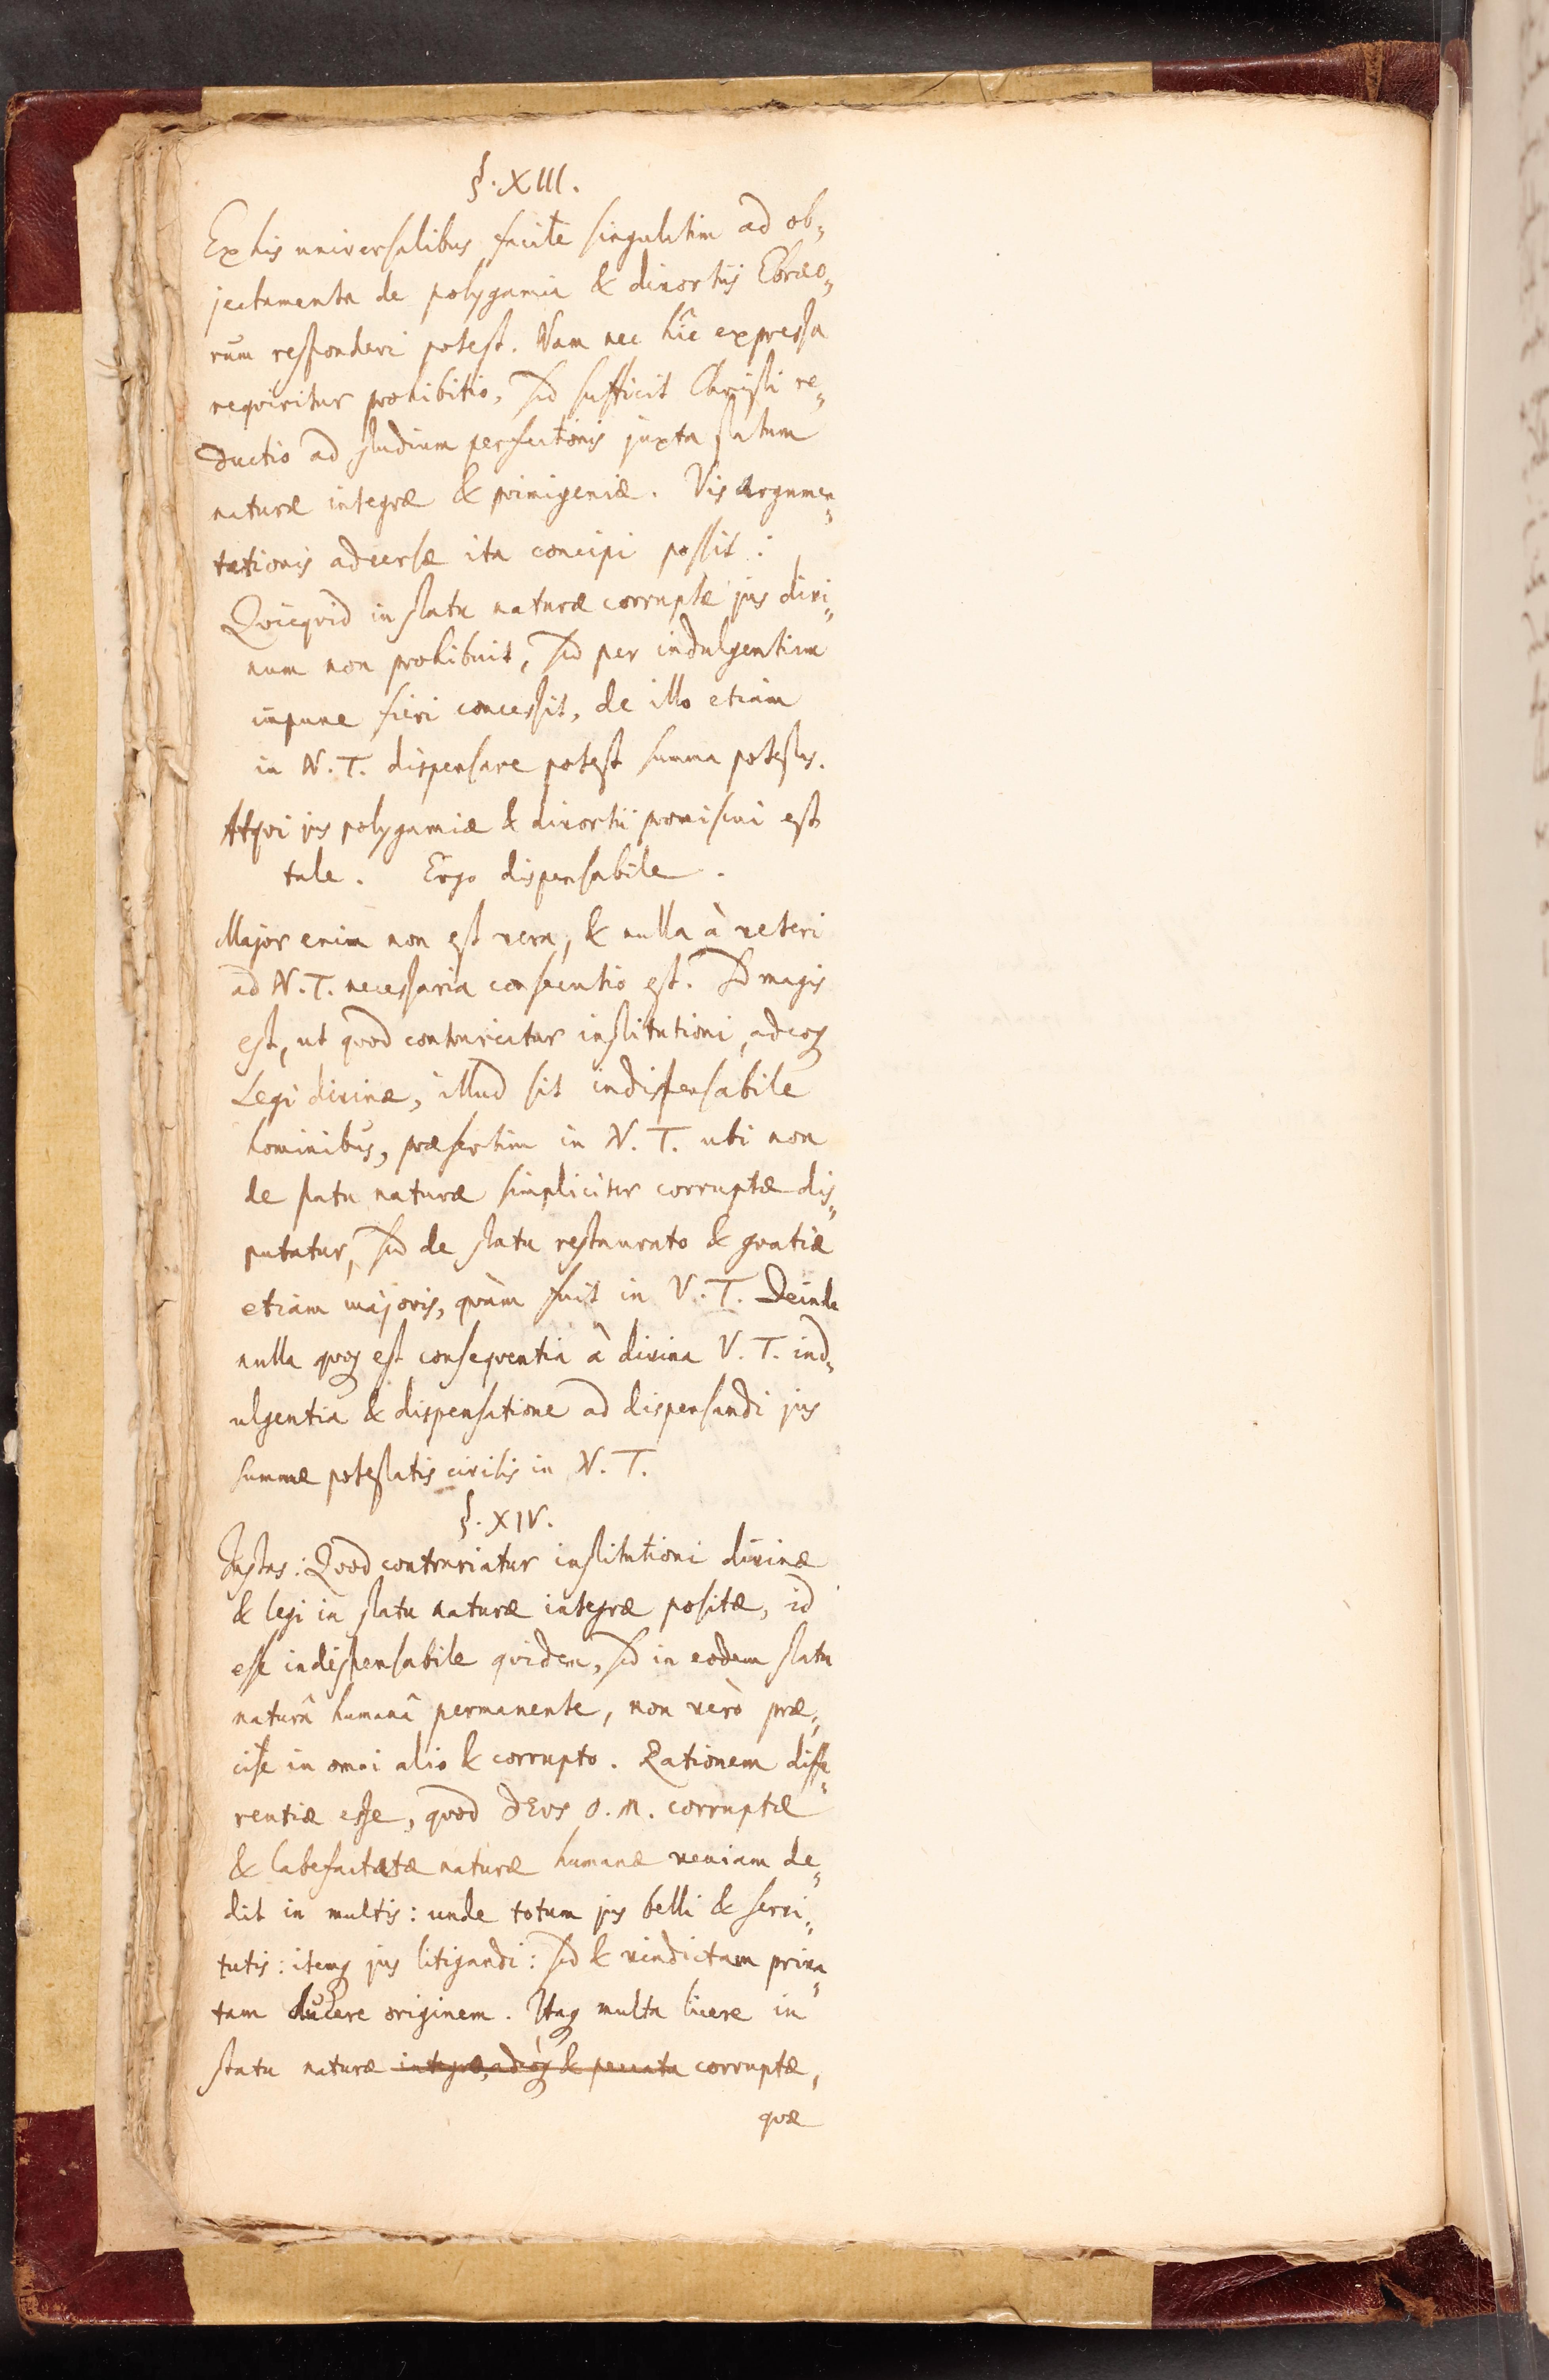 §. XIII.
Ex his universalibus facile singulatim ad ob-
jectamenta de polygamia & divortiis Ebræo-
rum responderi potest. Nam nec hîc expressa
reqviritur prohibitio, sed sufficit Christi re-
ductio ad studium perfectionis juxta statum
naturæ integræ & primigeniæ. Vis argumen-
tationis adversæ ita concipi possit:
Qvicqvid in statu naturæ corruptæ jus divi-
num non prohibuit, sed per indulgentiam
impune fieri concessit, de illo etiam
in N. T. dispensare potest summa potestas.
Atqvi jus polygamiæ & divortii promiscui est
tale. Ergo dispensabile.
Major enim non est vera, & nulla à veteri
ad N. T. necessaria consecutio est. Sed magis
est, ut qvod contrariatur institutioni, adeoq;
Legi divinæ, illud sit indispensabile
hominibus, præsertim in N. T. ubi non
de statu naturæ simpliciter corruptæ dis-
putatur, sed de statu restaurato & gratiæ
etiam majoris, qvàm fuit in V. T. Deinde
nulla qvoq; est conseqventia à divina V. T. ind-
ulgentia & dispensatione ad dispensandi jus
summæ potestatis civilis in N. T.
§. XIV.
Instas: Qvod contrariatur institutioni divinæ
& legi in statu naturæ integræ positæ, id
esse indispensabile qvidem, sed in eodem statu
naturâ humanâ permanente, non verò præ-
cise in omni alio & corrupto. Rationem diffe-
rentiæ esse, qvod DEVS O. M. corruptæ
& labefactatæ naturæ humanæ veniam de-
dit in multis: unde totum jus belli & servi-
tutis: itemq; jus litigandi: sed & vindictam priva-
tam ducere originem. Itaq; multa licere in
statu naturæ integræ, adeòq; & peccata corruptæ,
qvæ